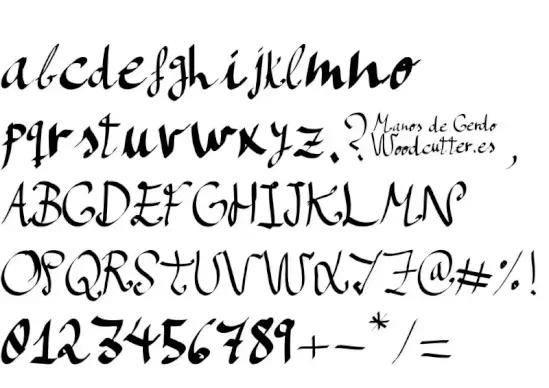 abcdefghijklmno
pqrstuvwxyz.?Manos de Gerdo
Woodcutter.es,
ABCDEFGHIJKLMN
OPQRSTUVWXYZ@#%!
0123456789+-*/=